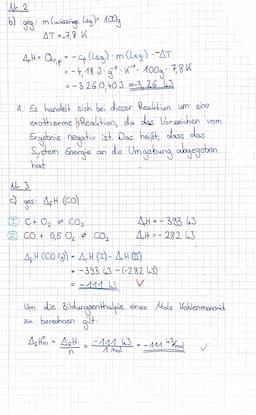 Nr. 2
b) geg: m(wässrige Lsg) = 100g
ΔT = -7,8 K
ΔrH = Qr,p = - cp (Lsg) · m (Lsg) · -ΔT
= -4,18 J · g⁻¹ · K⁻¹ · 100g · 7,8 K
= -3260,40 J = -3,26 kJ
A: Es handelt sich bei dieser Reaktion um eine
exotherme Reaktion, da das Vorzeichen vom
Ergebnis negativ ist. Das heißt, dass das
System Energie an die Umgebung abgegeben
hat
Nr. 3
c) ges: ΔfH (CO)
I C + O₂ ⇌ CO₂ ΔrH = -393 kJ
II CO + 0,5 O₂ ⇌ CO₂ ΔrH = -282 kJ
ΔfH (CO (g)) = ΔrH (I) - ΔrH (II)
= -393 kJ - (-282 kJ)
= -111 kJ ✓
Um die Bildungsenthalpie eines Mols Kohlenmonoxid
zu berechnen gilt:
ΔfH°m = ΔfH/n = -111 kJ/1 mol = -111 kJ/mol ✓